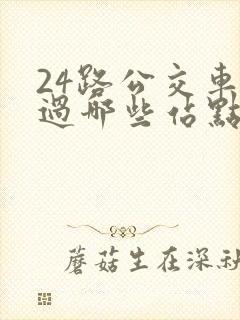 24路公交車
過哪些佔點
蘑菇生在深秋